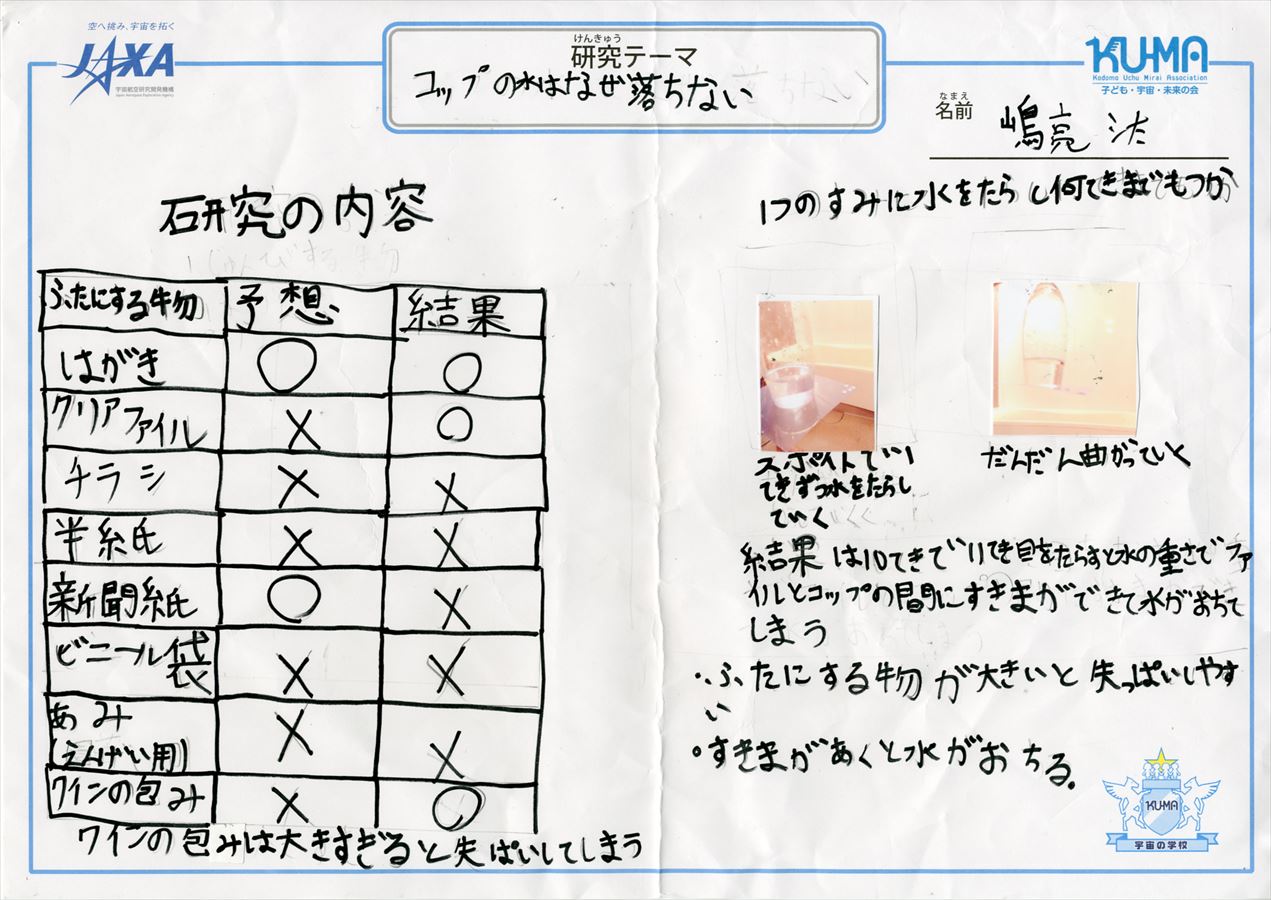 空へ挑み、宇宙を拓く
JAXA
宇宙航空研究開発機構
Japan Aerospace Exploration Agency
けんきゅう
研究テーマ
コップの水はなぜ落ちない
KU-MA
Kodomo Uchu Mirai Association
子ども・宇宙・未来の会
なまえ
名前 嶋亮汰
研究の内容
ふたにする物 予想 結果
はがき ○ ○
クリアファイル × ○
チラシ × ×
半紙 × ×
新聞紙 ○ ×
ビニール袋 × ×
あみ
(えんげい用) × ×
ワインの包み × ○
ワインの包みは大きすぎると失ぱいしてしまう
1つのすみに水をたらし何てきまでもつか
スポイトで1
てきずつ水をたらし
ていく
だんだん曲がっていく
結果は10てきで11てき目をたらすと水の重さでファ
イルとコップの間にすきまができて水がおちて
しまう
・ふたにする物が大きいと失っぱいしやす
い
・すきまがあくと水がおちる。
KU-MA
宇宙の学校